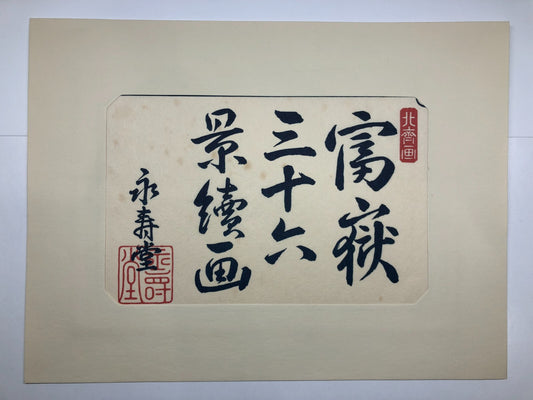 北斎画
富嶽
三十六
景續画
永寿堂
永壽堂